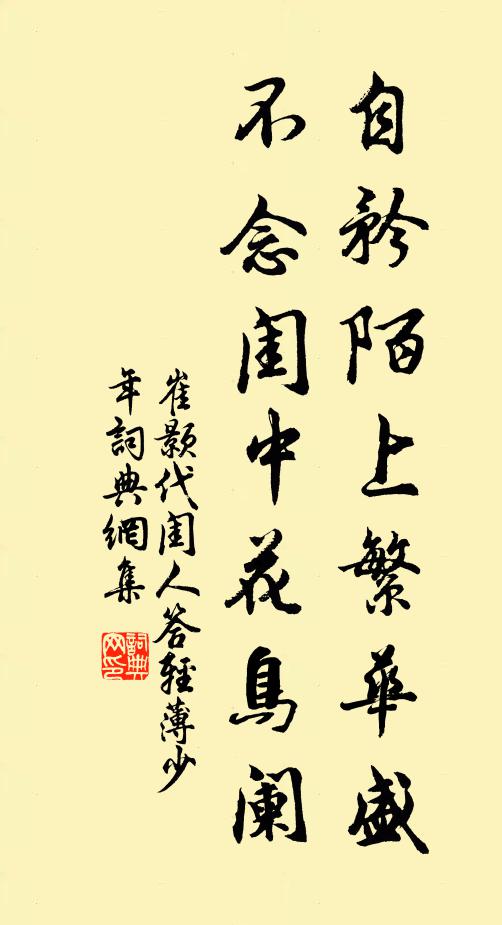 自矜陌上繁華盛
不念閨中花鳥闌
崔颢代閨人答輕薄少
年詞典網集
詞典
网印